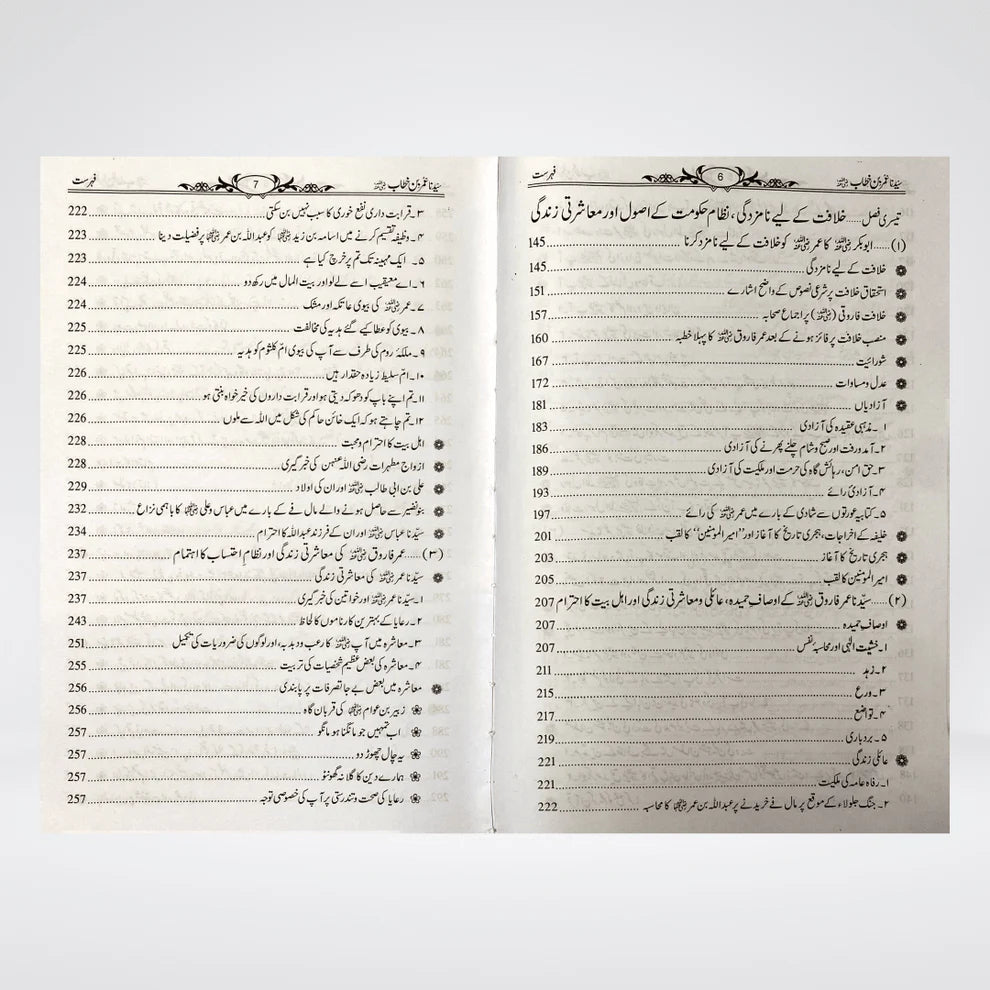 سیّدنا عمر بن خطاب رضی اللہ عنہ 6 فہرست
تیسری فصل ..... خلافت کے لیے نامزدگی، نظام حکومت کے اصول اور معاشرتی زندگی
(۱)..... ابوبکر رضی اللہ عنہ کا عمر رضی اللہ عنہ کو خلافت کے لیے نامزد کرنا 145
خلافت کے لیے نامزدگی 145
استحقاق خلافت پر شرعی نصوص کے واضح اشارے 151
خلافت فاروقی (رضی اللہ عنہ) پر اجماع صحابہ 157
منصب خلافت پر فائز ہونے کے بعد عمر فاروق رضی اللہ عنہ کا پہلا خطبہ 160
شورائیت 167
عدل و مساوات 172
آزادیاں 181
۱۔ مذہبی عقیدہ کی آزادی 183
۲۔ آمد و رفت اور صبح و شام چلنے پھرنے کی آزادی 186
۳۔ حق امن، رہائش گاہ کی حرمت اور ملکیت کی آزادی 189
۴۔ آزادیٔ رائے 193
۵۔ کتابیہ عورتوں سے شادی کے بارے میں عمر رضی اللہ عنہ کی رائے 197
خلیفہ کے اخراجات، ہجری تاریخ کا آغاز اور ’’امیر المومنین‘‘ کا لقب 201
ہجری تاریخ کا آغاز 203
امیر المومنین کا لقب 205
(۲)..... سیّدنا عمر فاروق رضی اللہ عنہ کے اوصاف حمیدہ، عائلی و معاشرتی زندگی اور اہل بیت کا احترام 207
اوصاف حمیدہ 207
۱۔ خشیت الٰہی اور محاسبۂ نفس 207
۲۔ زہد 211
۳۔ ورع 215
۴۔ تواضع 217
۵۔ بردباری 219
عائلی زندگی 221
۱۔ رفاہ عامہ کی ملکیت 221
۲۔ جنگ جلولاء کے موقع پر مال فے خریدنے پر عبداللہ بن عمر رضی اللہ عنہما کا محاسبہ 222
سیّدنا عمر بن خطاب رضی اللہ عنہ 7 فہرست
۳۔ قرابت داری نفع خوری کا سبب نہیں بن سکتی 222
۴۔ وظیفہ تقسیم کرنے میں اسامہ بن زید رضی اللہ عنہما کو عبداللہ بن عمر رضی اللہ عنہما پر فضیلت دینا 223
۵۔ ایک مہینہ تک تم پر خرچ کیا ہے 223
۶۔ اے معیقیب اسے لے لو اور بیت المال میں رکھ دو 224
۷۔ عمر رضی اللہ عنہ کی بیوی عاتکہ اور مشک 224
۸۔ بیوی کو عطا کیے گئے ہدیہ کی مخالفت 225
۹۔ ملکۂ روم کی طرف سے آپ کی بیوی امّ کلثوم کو ہدیہ 225
۱۰۔ امّ سلیط زیادہ حقدار ہیں 226
۱۱۔ تم اپنے باپ کو دھوکہ دیتی ہو اور قرابت داروں کی خیر خواہ بنتی ہو 226
۱۲۔ تم چاہتے ہو کہ ایک خائن حاکم کی شکل میں اللہ سے ملوں 226
اہل بیت کا احترام و محبت 228
ازواج مطہرات رضی اللہ عنہن کی خبر گیری 228
علی بن ابی طالب رضی اللہ عنہ اور ان کی اولاد 229
بنو نضیر سے حاصل ہونے والے مال فے کے بارے میں عباس و علی رضی اللہ عنہما کا باہمی نزاع 232
سیّدنا عباس رضی اللہ عنہ اور ان کے فرزند عبداللہ کا احترام 234
(۳)..... عمر فاروق رضی اللہ عنہ کی معاشرتی زندگی اور نظام احتساب کا اہتمام 237
سیّدنا عمر رضی اللہ عنہ کی معاشرتی زندگی 237
۱۔ سیّدنا عمر رضی اللہ عنہ اور خواتین کی خبر گیری 237
۲۔ رعایا کے بہترین کارناموں کا لحاظ 243
۳۔ معاشرہ میں آپ رضی اللہ عنہ کا رعب و دبدبہ، اور لوگوں کی ضروریات کی تکمیل 251
۴۔ معاشرہ کی بعض عظیم شخصیات کی تربیت 255
معاشرہ میں بعض بے جا تصرفات پر پابندی 256
زبیر بن عوام رضی اللہ عنہ کی قربان گاہ 256
اب تمہیں جو مانگنا ہو مانگو 257
یہ چال چھوڑ دو 257
ہمارے دین کا گلا نہ گھونٹو 257
رعایا کی صحت و تندرستی پر آپ کی خصوصی توجہ 257